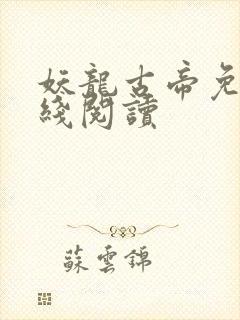 妖龍古帝免
綫閱讀
蘇雲錦